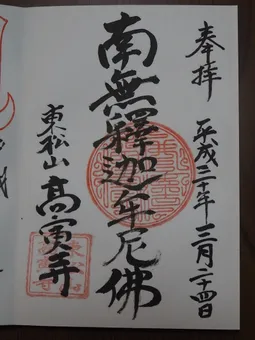 奉拝
平成二十年三月二十四日
南無釋迦牟尼佛
東松山